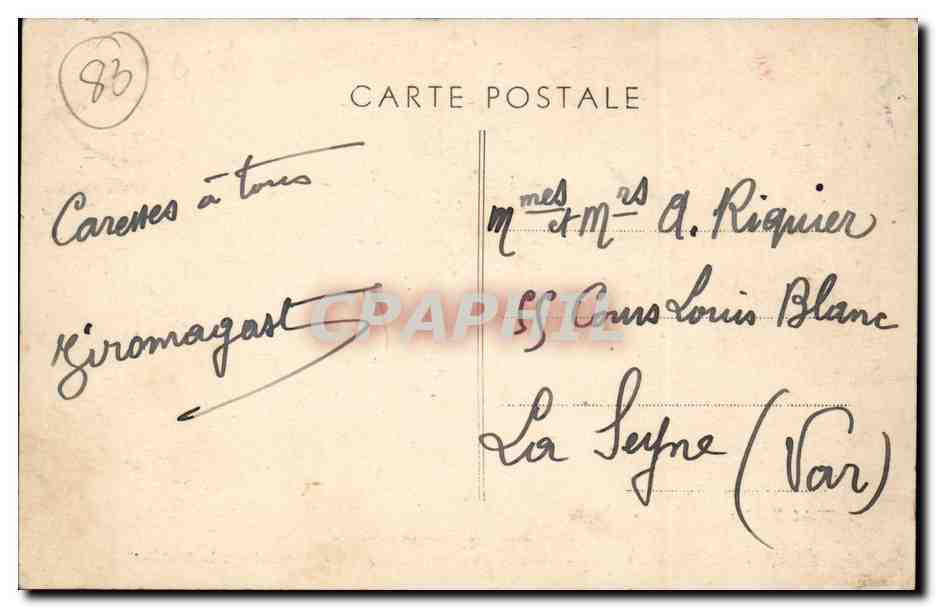 83
CARTE POSTALE
Caresses à tous
Giromagast
Mmes et Mrs A. Riquier
55 Cours Louis Blanc
La Seyne (Var)
CPAPHIL